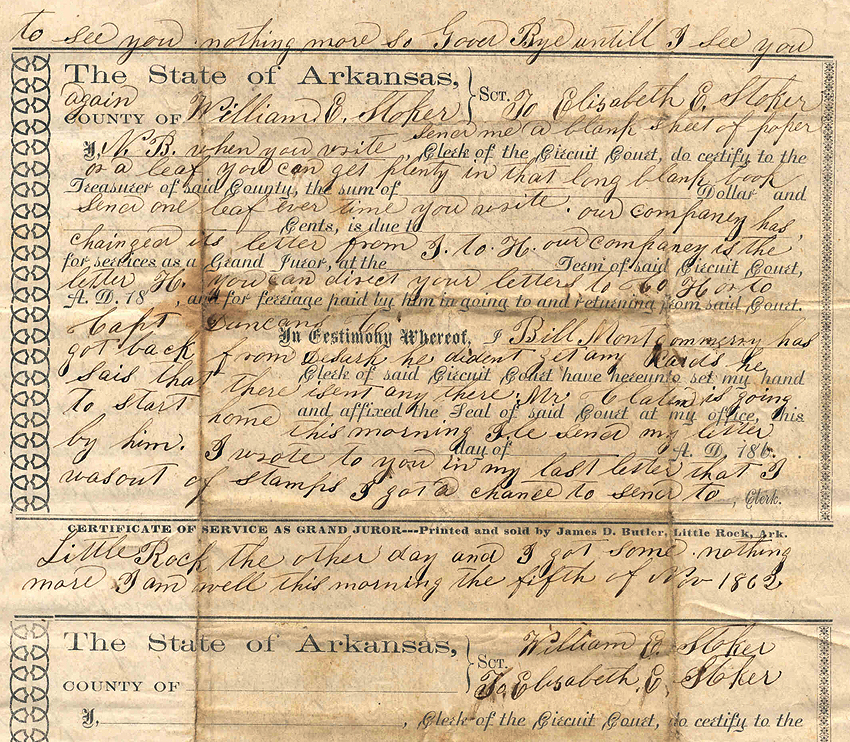 to see you nothing more so Good Bye untill I see you
The State of Arkansas,
again
Sct. To Elisabeth E. Stoker
COUNTY OF William E. Stoker
send me a blank sheet of paper
I, N.B. when you write Clerk of the Circuit Court, do certify to the
or a leaf you can get plenty in that long blank book
Treasurer of said County, the sum of Dollar and
send one leaf ever time you write. our company has,
Cents, is due to
chainged its letter from I. to H. our company is the
for services as a Grand Juror, at the Term of said Circuit Court,
letter H. you can direct your letters to co H or to
A. D. 18 , and for ferriage paid by him in going to and returning from said Court.
Capt Duncans Co
In Testimony Whereof, I Bill Montgommerry has
got back from Desark he dident get any he
Clerk of said Circuit Court have hereunto set my hand
sais that there isent any there. Mr. is going
and affixed the Seal of said Court at my office, this
to start home this morning I le send my letter
by him. I wrote to you in my last letter that I
day of A. D. 186 .
wasout of stamps I got a chance to send to
, Clerk.
CERTIFICATE OF SERVICE AS GRAND JUROR---Printed and sold by James D. Butler, Little Rock, Ark.
Little Rock the other day and I got some. nothing
more I am well this morning the fifth of Nov 1862
The State of Arkansas,
William E. Stoker
Sct.
COUNTY OF
To Elisabeth E. Stoker
I, , Clerk of the Circuit Court, do certify to the